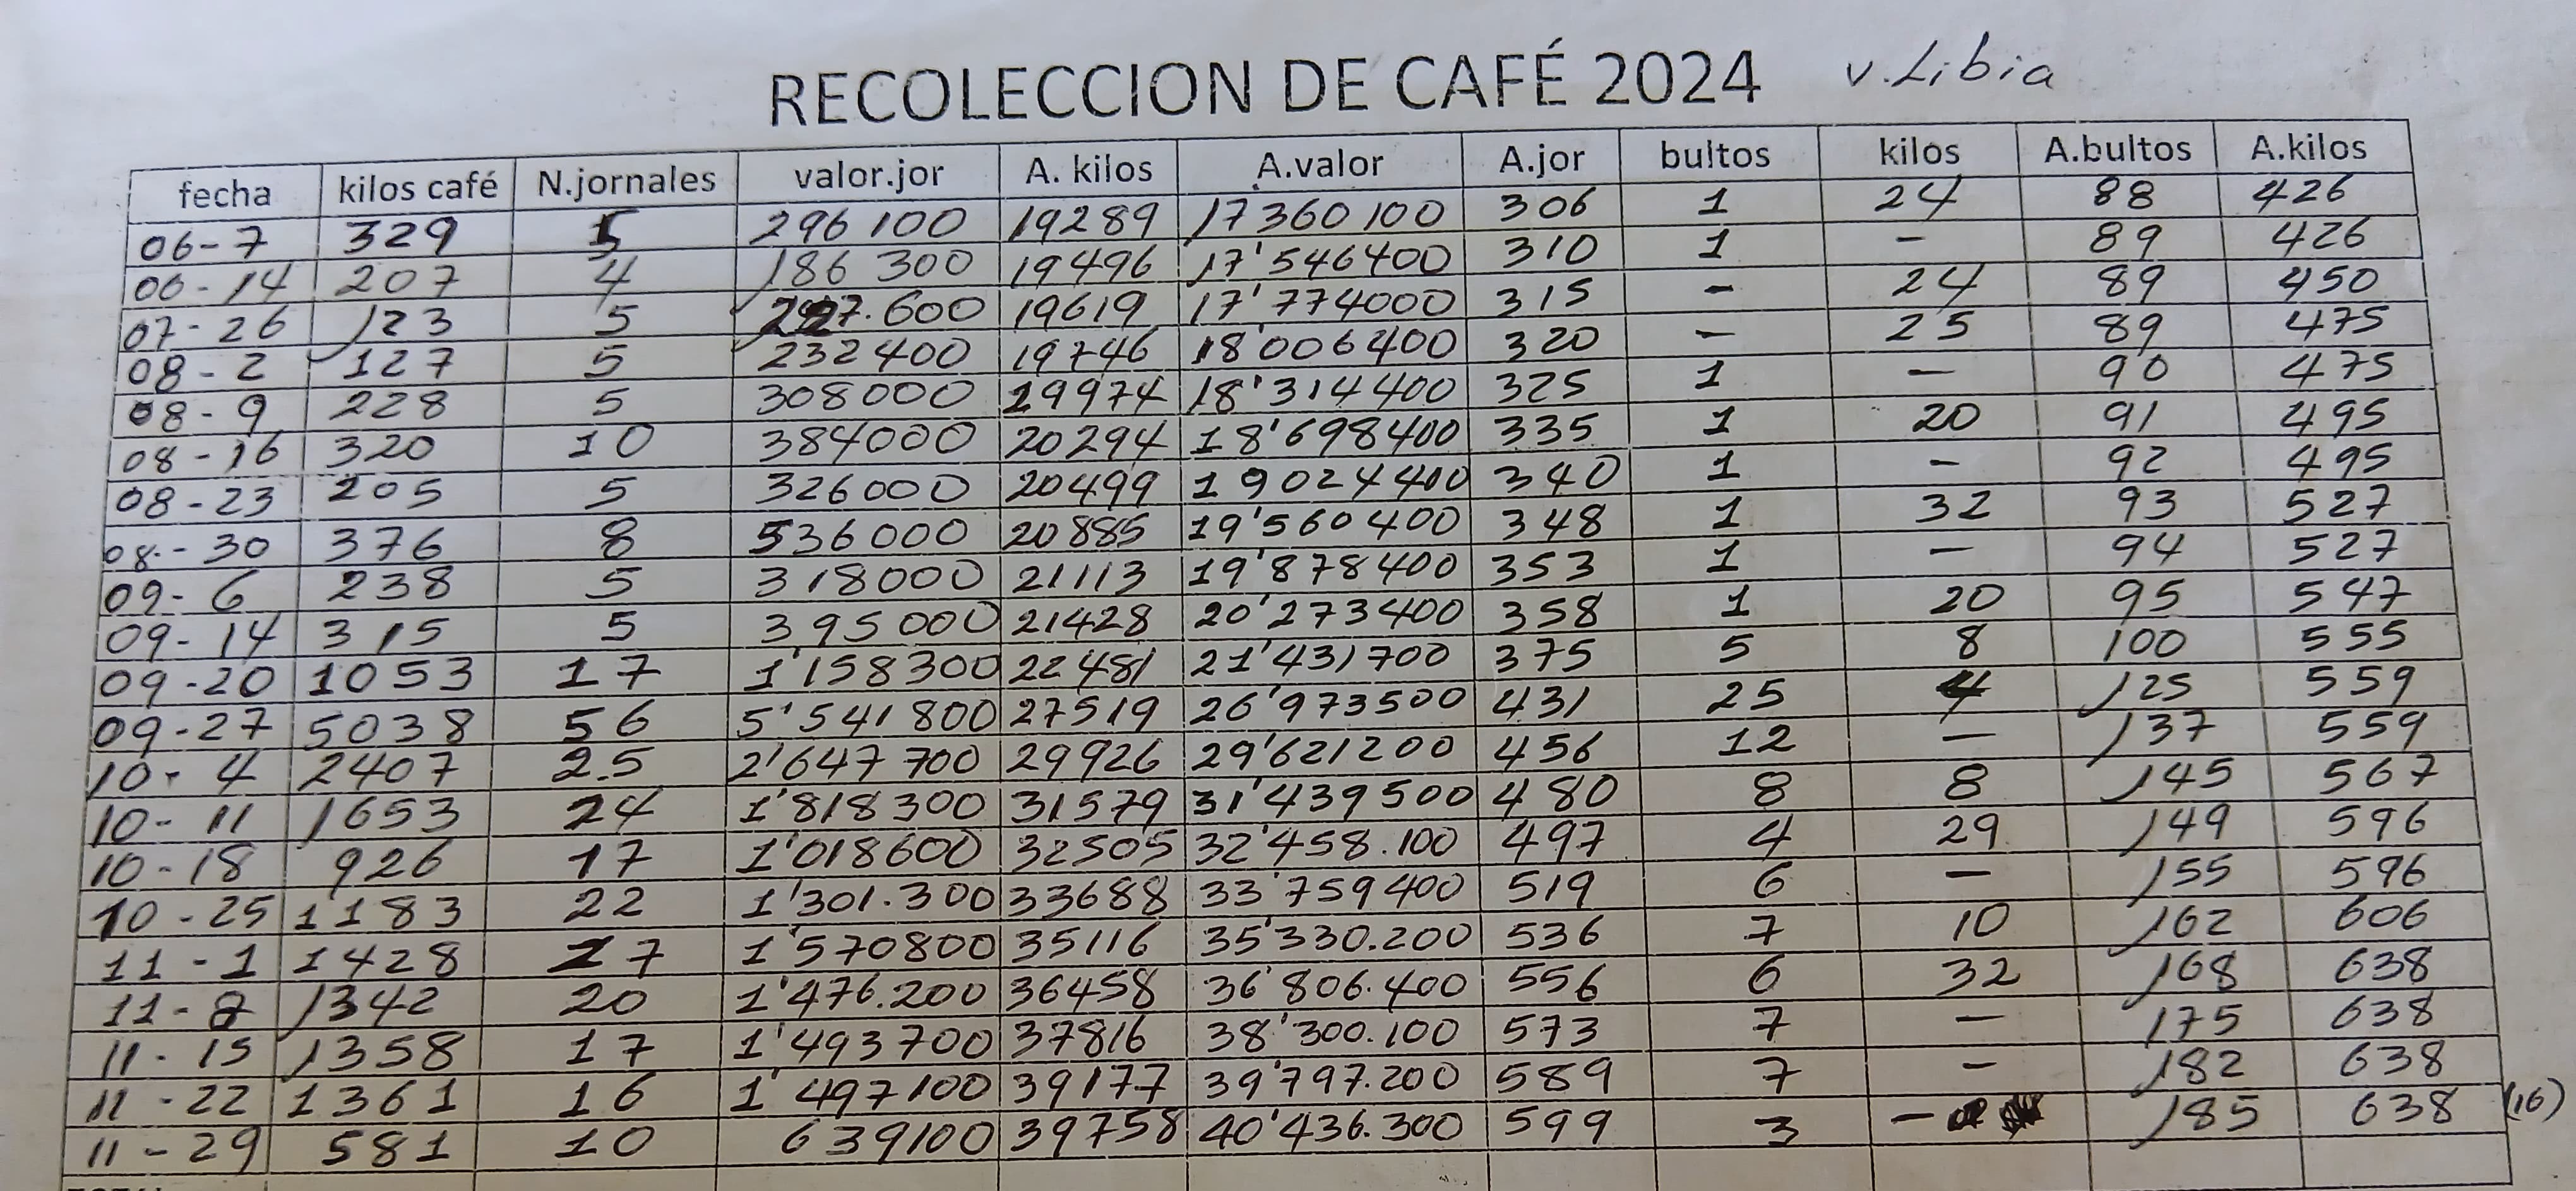 RECOLECCION DE CAFÉ 2024 v.Libia
fecha kilos café N.jornales valor.jor A. kilos A.valor A.jor bultos kilos A.bultos A.kilos
06-7 329 5 296 100 19289 17360 100 306 1 24 88 426
06-14 207 4 186 300 19496 17'546400 310 1 - 89 426
07-26 123 5 227.600 19619 17'774000 315 - 24 89 450
08-2 127 5 232400 19746 18'006400 320 - 25 89 475
08-9 228 5 308000 19974 18'314400 325 1 - 90 475
08-16 320 10 384000 20294 18'698400 335 1 20 91 495
08-23 205 5 326000 20499 19024400 340 1 - 92 495
08-30 376 8 536000 20885 19'560400 348 1 32 93 527
09-6 238 5 318000 21113 19'878400 353 1 - 94 527
09-14 315 5 395000 21428 20'273400 358 1 20 95 547
09-20 1053 17 1'158300 22481 21'431700 375 5 8 100 555
09-27 5038 56 5'541800 27519 26'973500 431 25 4 125 559
10-4 2407 25 2'647700 29926 29'621200 456 12 - 137 559
10-11 1653 24 1'818300 31579 31'439500 480 8 8 145 567
10-18 926 17 1'018600 32505 32'458.100 497 4 29 149 596
10-25 1183 22 1'301.300 33688 33'759400 519 6 - 155 596
11-1 1428 17 1'570800 35116 35'330.200 536 7 10 162 606
11-8 1342 20 1'476.200 36458 36'806.400 556 6 32 168 638
11-15 1358 17 1'493700 37816 38'300.100 573 7 - 175 638
11-22 1361 16 1'497100 39177 39'797.200 589 7 - 182 638
11-29 581 10 639100 39758 40'436.300 599 3 - 185 638 (16)